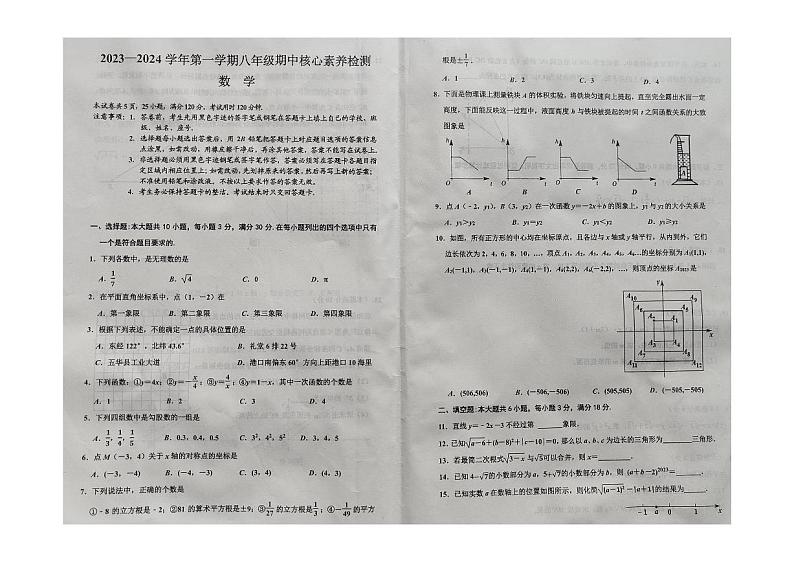 2023—2024 学年第一学期八年级期中核心素养检测
数 学
本试卷共 5 页，25 小题，满分 120 分，考试用时 120 分钟.
注意事项：1. 答卷前，考生先用黑色字迹的签字笔或钢笔在答题卡上填上自己的学校、班
级、姓名、座号.
2. 选择题每小题选出答案后，用 2B 铅笔把答题卡上对应题目选项的答案信息
点涂黑，如需改动，用橡皮擦干净后，再涂其他答案，答案不能写在试卷上.
3. 非选择题必须用黑色字迹钢笔或签字笔作答，答案必须写在答题卡各题目指
定区域内相应位置上；如需改动，先划掉原来的答案，然后再写上新的答案；
不准使用铅笔和涂改液，不按以上要求作答的答案无效.
4. 考生务必保持答题卡的整洁，考试结束时只交回答题卡.
一、选择题：本大题共 10 小题，每小题 3 分，满分 30 分.在每小题列出的四个选项中只有
一个是符合题目要求的.
1. 下列各数中，是无理数的是
A. 1/7 B. √4 C. 0 D. π
2. 在平面直角坐标系中，点（1，－2）在
A. 第一象限 B. 第二象限 C. 第三象限 D. 第四象限
3. 根据下列表述，不能确定一点的具体位置的是
A. 东经 122°，北纬 43.6° B. 礼堂 6 排 22 号
C. 五华县工业大道 D. 港口南偏东 60° 方向上距港口 10 海里
4. 下列函数：①y=4x；②y=－x/4；③y=4/x；④y=1－x，其中一次函数的个数是
A. 1 B. 2 C. 3 D. 4
5. 下列四组数中是勾股数的一组是
A. 1/3，1/4，1/5 B. 0.3，0.4，0.5 C. 3²，4²，5² D. 3，4，5
6. 点 M（－3，4）关于 x 轴的对称点的坐标是
A.（－3，－4） B.（－4，－3） C.（3，4） D.（3，－4）
7. 下列说法中，正确的个数是
①－8 的立方根是－2；②81 的算术平方根是±9；③1/27 的立方根是 1/3；④－1/49 的平方
根是±1/7.
A. 1 B. 2 C. 3 D. 4
8. 下面是物理课上测量铁块 A 的体积实验，将铁块匀速向上提起，直至完全露出水面一定
高度，下面能反映这一过程中，液面高度 h 与铁块被提起的时间 t 之间函数关系的大致
图象是
h h h h
O t O t O t O t
A B C D
A
9. 点 A（－2，y₁），B（3，y₂）在一次函数 y=－2x+b 的图象上，y₁ 与 y₂ 的大小关系是
A. y₁>y₂ B. y₁=y₂ C. y₁<y₂ D. y₁≥y₂
10. 如图，所有正方形的中心均在坐标原点，且各边与 x 轴或 y 轴平行，从内到外，它们
边长依次为 2，4，6，8，10，…，顶点 A₁，A₂，A₃，A₄，A₅…的坐标分别为 A₁(1,1)，
A₂(－1,1)，A₃(－1,－1)，A₄(1,－1)，A₅(2,2)，A₆(－2,2)，…，则顶点的坐标 A₂₀₂₃ 是
y
A₁₀ A₉
A₆ A₅
A₂ A₁
O x
A₃ A₄
A₇ A₈
A₁₁ A₁₂
A. (506,506) B. (－506,－506) C. (505,505) D. (－505,－505)
二、填空题：本大题共 5 小题，每小题 3 分，满分 18 分.
11. 直线 y=－2x－3 不经过第 ______象限.
12. 已知√(a－6)+(b－8)²+|c－10|=0，那么以 a、b、c 为边长的三角形为______三角形.
13. 若最简二次根式√(3－x)与√5可合并，则 x=______.
14. 已知 4－√7的小数部分为 a，5+√7的小数部分为 b，则 (a+b－2)²⁰²³=______.
15. 已知实数 a 在数轴上的位置如图所示，则化简√(a－1)²－|a+1|的结果为______.
－1 a 0 1